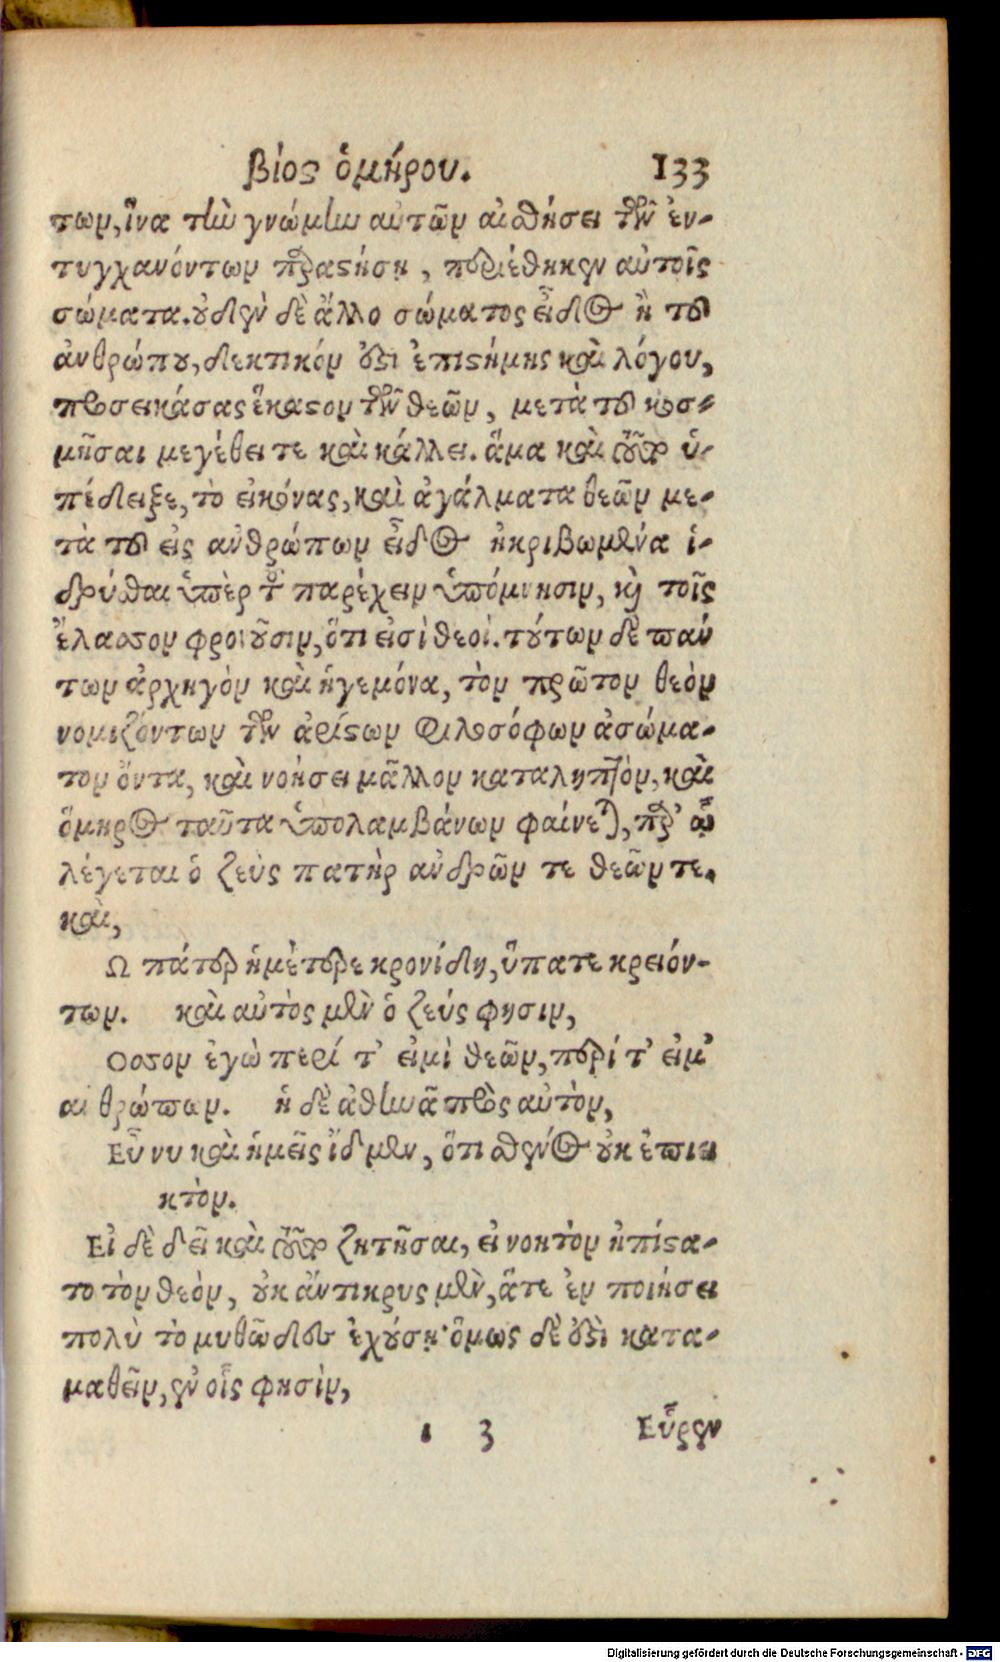 βίος ὁμήρου. 133
των, ἵνα τὴν γνώμην αὐτῶν αἰσθήσει τῶν ἐν-
τυγχανόντων παραστήσῃ, περιέθηκεν αὐτοῖς
σώματα. οὐδὲν δὲ ἄλλο σώματος εἶδος ἢ τοῦ
ἀνθρώπου, δεκτικόν ἐστι ἐπιστήμης καὶ λόγου,
προσεικάσας ἕκαστον τῶν θεῶν, μετὰ τοῦ κοσ-
μῆσαι μεγέθει τε καὶ κάλλει. ἅμα καὶ τοῦτο ὑ-
πέδειξε, τὸ εἰκόνας, καὶ ἀγάλματα θεῶν με-
τὰ τοῦ εἰς ἀνθρώπων εἶδος ἠκριβωμένα ἱ-
δρύσθαι ὑπὲρ τοῦ παρέχειν ὑπόμνησιν, καὶ τοῖς
ἔλασσον φρονοῦσιν, ὅτι εἰσὶ θεοί. τούτων δὲ πάν
των ἀρχηγὸν καὶ ἡγεμόνα, τὸν πρῶτον θεὸν
νομιζόντων τῶν ἀρίστων φιλοσόφων ἀσώμα-
τον ὄντα, καὶ νοήσει μᾶλλον καταληπτὸν, καὶ
ὅμηρος ταῦτα ὑπολαμβάνων φαίνεται, παρ' ᾧ
λέγεται ὁ ζεὺς πατὴρ ἀνδρῶν τε θεῶν τε.
καὶ,
Ω πάτερ ἡμέτερε κρονίδη, ὕπατε κρειόν-
των. καὶ αὐτὸς μὲν ὁ ζεύς φησιν,
Οσσον ἐγὼ περί τ' εἰμὶ θεῶν, περί τ' εἴμ'
ἀνθρώπων. ἡ δὲ ἀθηνᾶ πρὸς αὐτὸν,
Εὖ νυ καὶ ἡμεῖς ἴδμεν, ὅτι σθένος οὐκ ἐπιει
κτὸν.
Εἰ δὲ δεῖ καὶ τοῦτο ζητῆσαι, εἰ νοητὸν ἠπίστα-
το τὸν θεὸν, οὐκ ἄντικρυς μὲν, ἅτε ἐν ποιήσει
πολὺ τὸ μυθῶδες ἐχούσῃ· ὅμως δέ ἐστι κατα-
μαθεῖν, ἐν οἷς φησὶν,
ι 3 Εὗρεν
Digitalisierung gefördert durch die Deutsche Forschungsgemeinschaft - DFG